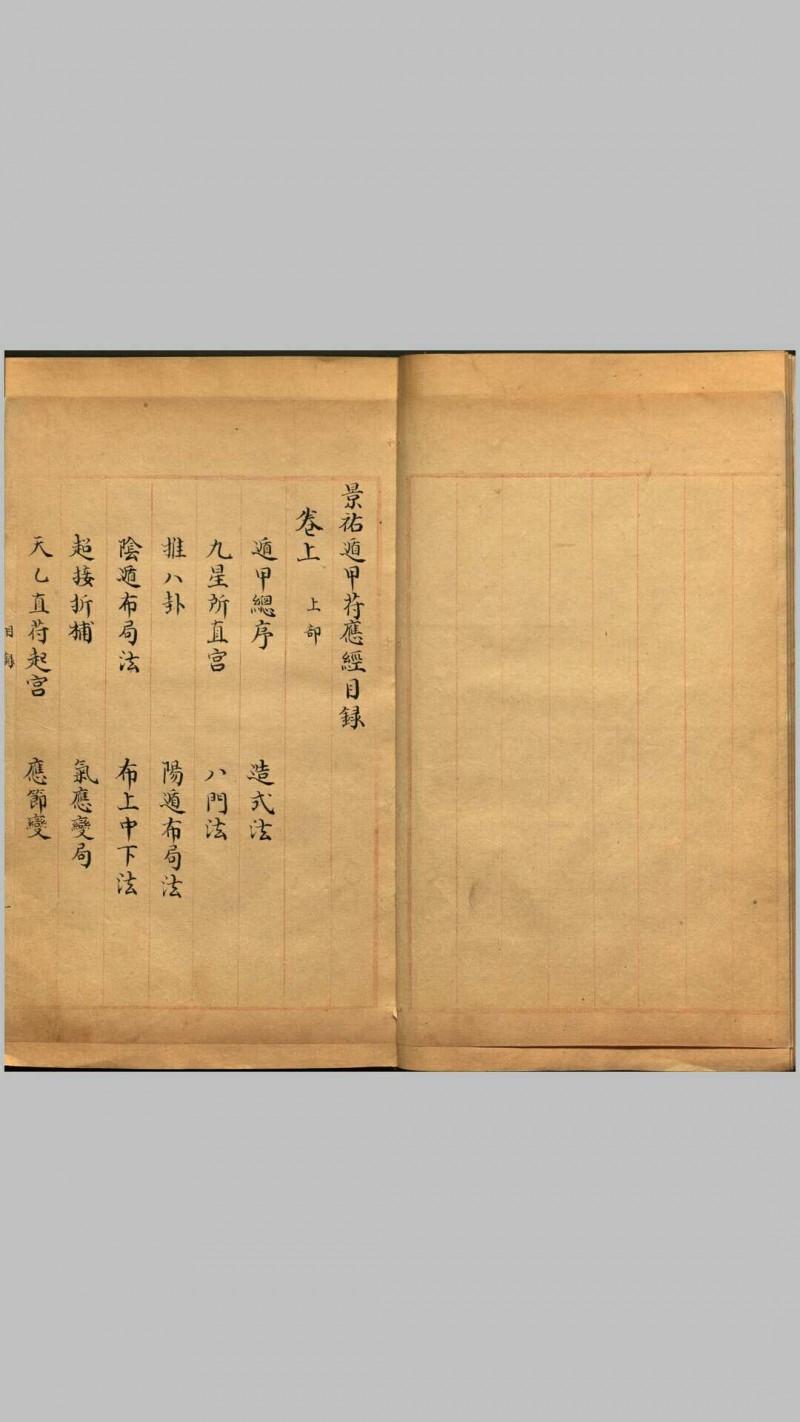 景祐遁甲苻應經目録
卷上 上部
遁甲總序 造式法
九星所直宮 八門法
推八卦 陽遁布局法
陰遁布局法 布上中下法
超接折補 氣應變局
天乙直苻起宮 應節變
目録